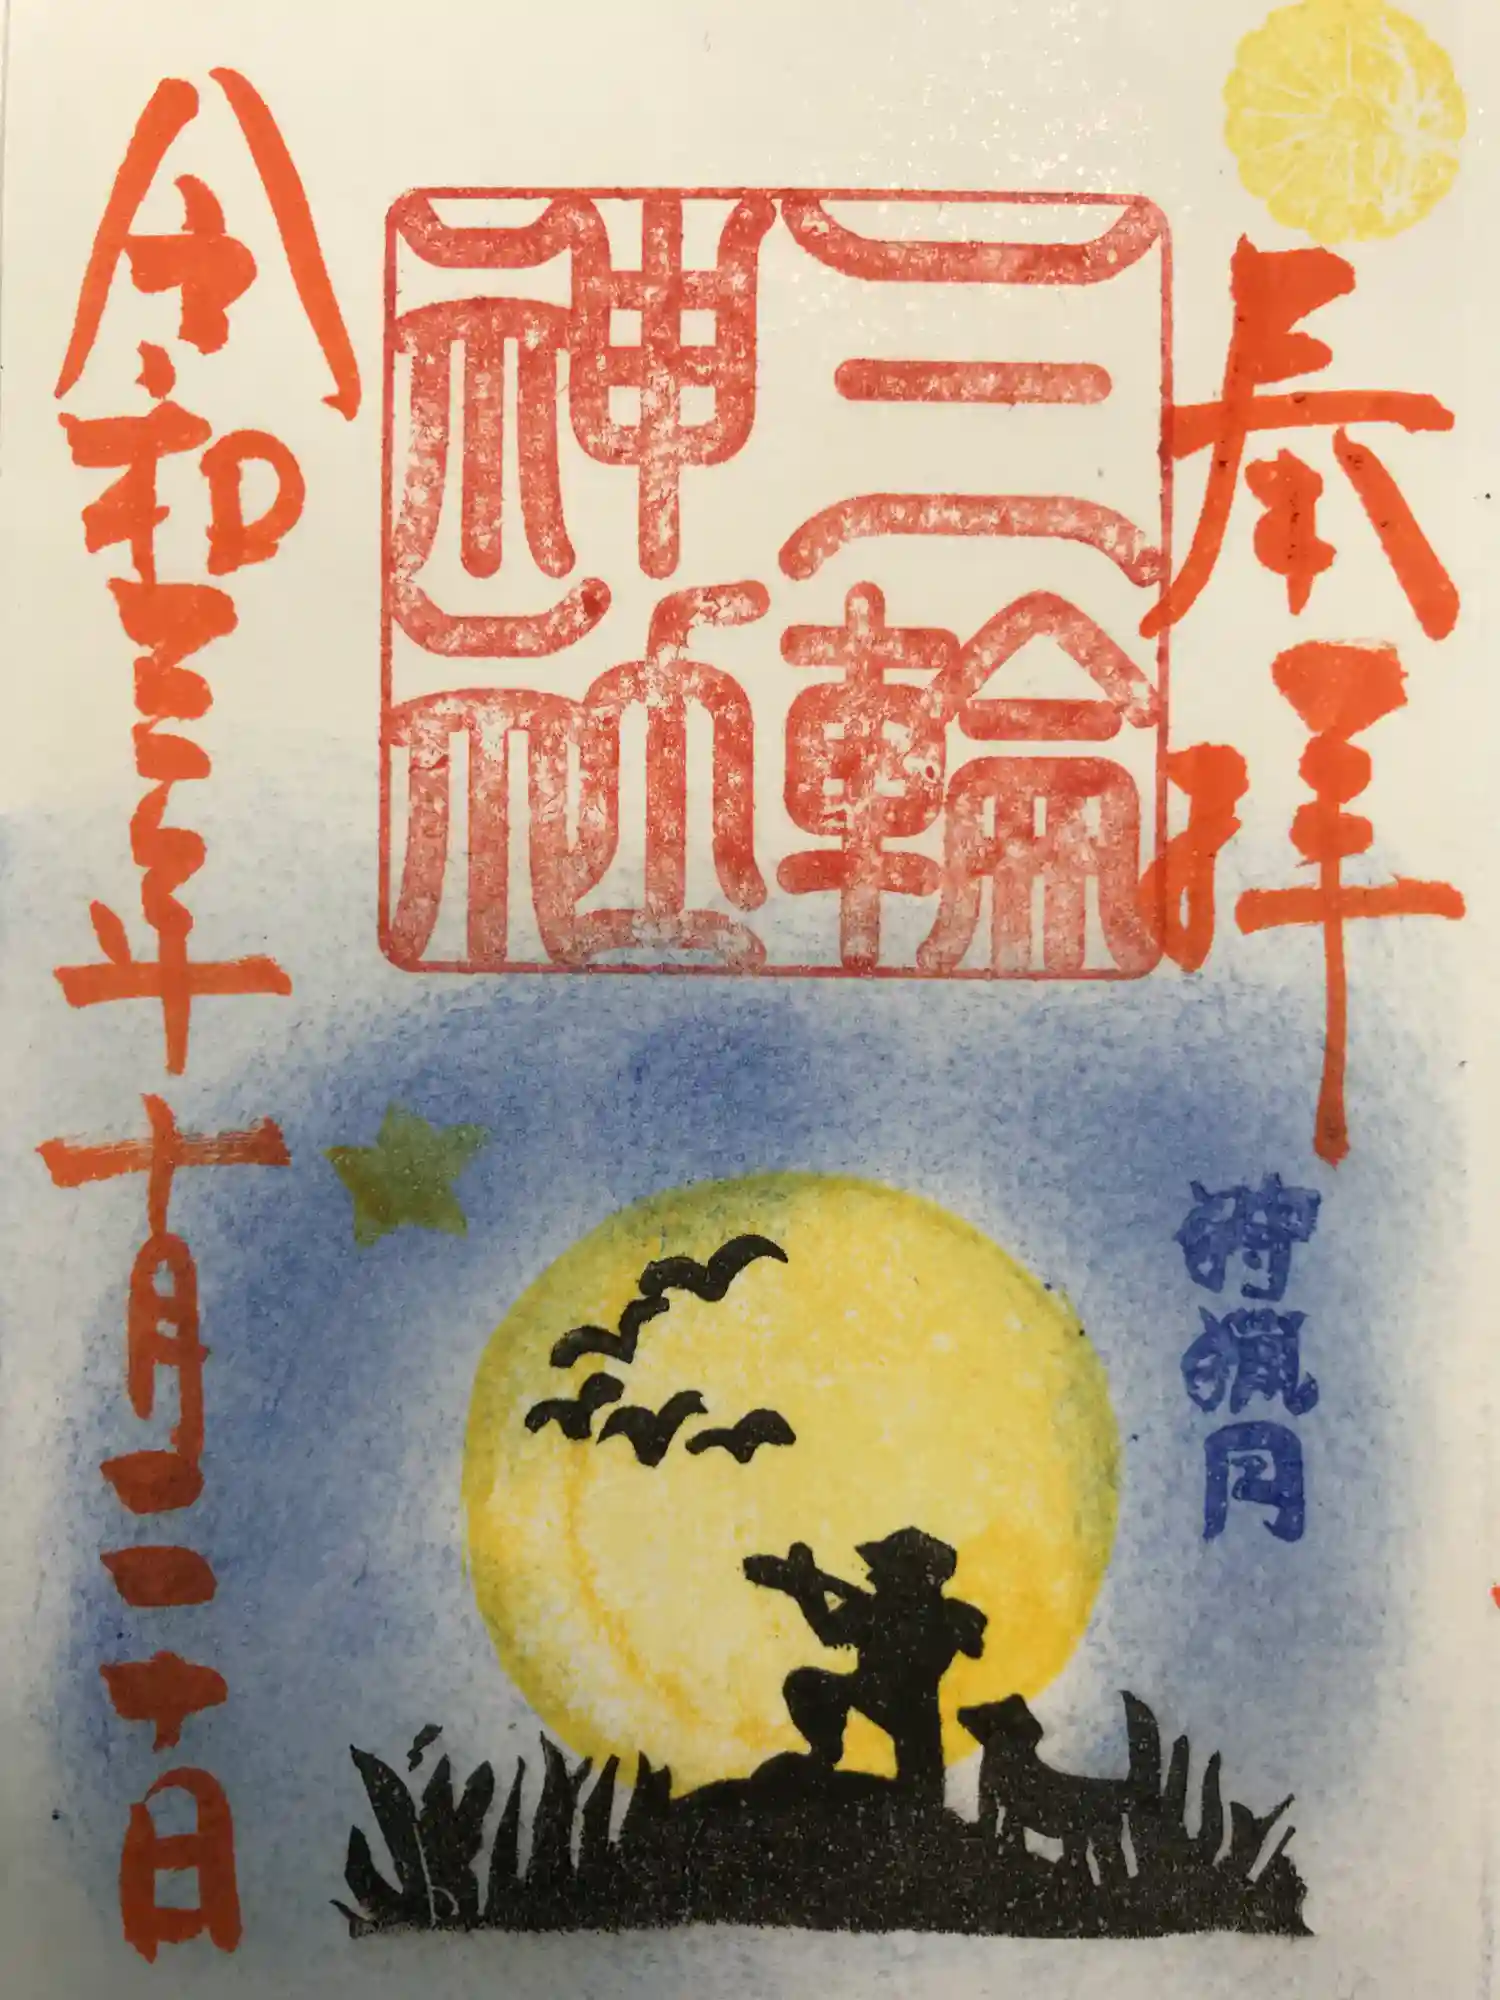 奉拝
狩猟月
三輪
神社
令和三年十月二十日